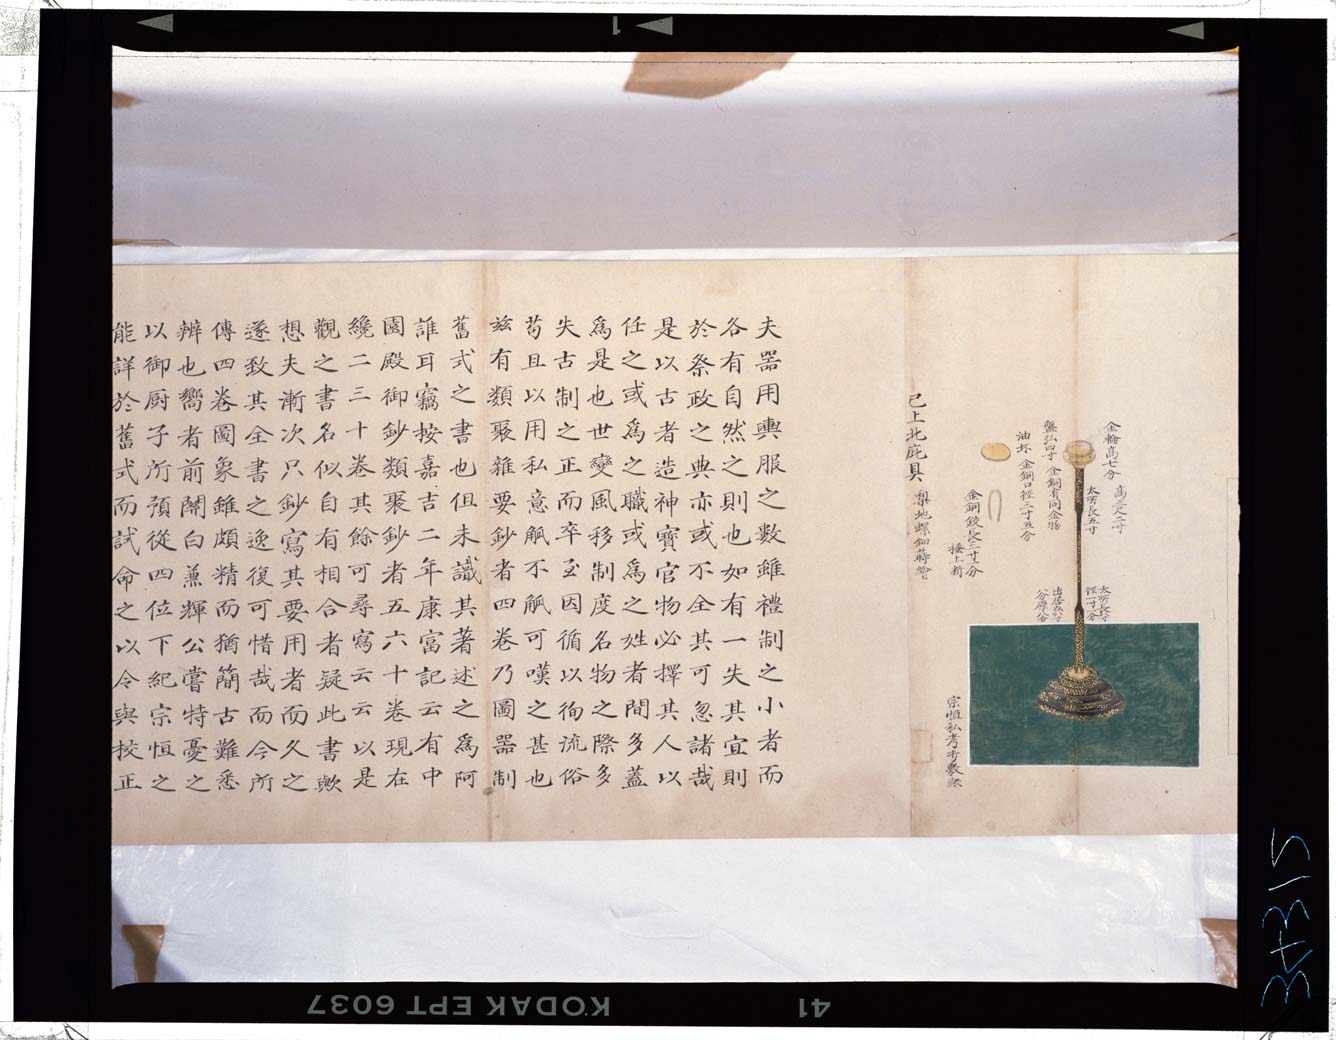 金輪高七分 高三尺二寸
太所長五寸
太所長六寸
径一寸八分
盤弘四寸 金銅有同金物
油坏 金銅口径二寸五分
金銅鉸長三寸八分
宗恒私考
已上北庇具 梨地螺鈿蒔繪
夫器用輿服之數雖禮制之小者而
各有自然之則也如有一失其宜則
於祭政之典亦或不全其可忽諸哉
是以古者造神寶官物必擇其人以
任之或為之職或為之姓者間多蓋
為是也世變風移制度名物之際多
失古制之正而卒至因循以徇流俗
苟且以用私意觚不觚可嘆之甚也
兹有類聚雜要鈔者四卷乃圖器制
舊式之書也但未識其著述之為阿
誰耳竊按嘉吉二年康富記云有中
園殿御鈔類聚鈔者五六十卷現在
纔二三十卷其餘可尋寫云云以是
觀之書名似自有相合者疑此書歟
想夫漸次只鈔寫其要用者而久之
遂致其全書之逸復可惜哉而今所
傳四卷圖象雖頗精而猶簡古難悉
辨也嚮者前關白兼輝公嘗特憂之
以御厨子所預從四位下紀宗恒之
能詳於舊式而試命之以令與挍正
KODAK EPT 6037
41
1
34315